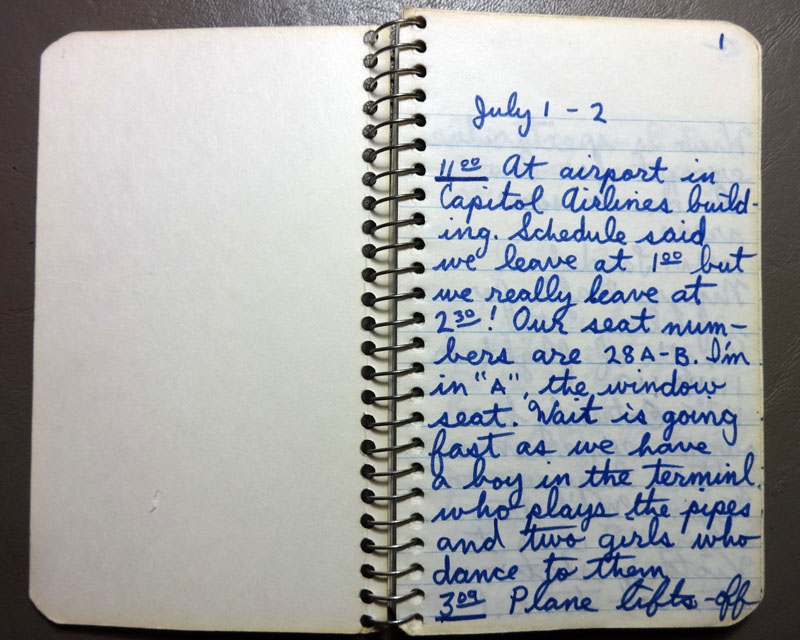 1
July 1 - 2
11 00 At airport in
Capitol Airlines build-
ing. Schedule said
we leave at 1 00 but
we really leave at
2 30! Our seat num-
bers are 28A-B. I'm
in "A", the window
seat. Wait is going
fast as we have
a boy in the terminl
who plays the pipes
and two girls who
dance to them
3 09 Plane lifts-off